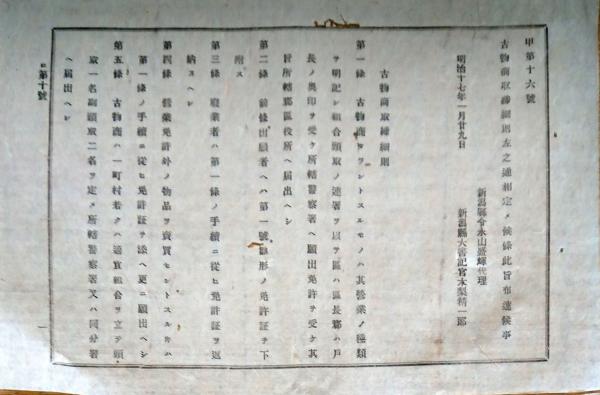 甲第十六號
古物商取締細則左之通相定メ候條此旨布達候事
明治十七年一月廿九日
新潟縣令永山盛輝代理
新潟縣大書記官木梨精一郎
古物商取締細則
第一條 古物商タラントスルモノハ其營業ノ種類
ヲ明記シ組合頭取ノ連署ヲ以テ區ハ區長郡ハ戸
長ノ奥印ヲ受ケ所轄警察署ヘ願出免許ヲ受ケ其
旨所轄郡區役所ヘ届出ヘシ
第二條 前條出願者ヘハ第一號雛形ノ免許証ヲ下
附ス
第三條 廢業者ハ第一條ノ手續ニ從ヒ免許証ヲ返
納スヘシ
第四條 營業免許外ノ物品ヲ賣買セントスル時ハ
第一條ノ手續ニ從ヒ免許証ヲ添ヘ更ニ願出ヘシ
第五條 古物商ハ一町村若クハ適宜組合ヲ立テ頭
取一名副頭取二名ヲ定メ所轄警察署又ハ同分署
ヘ届出ヘシ
第十號
一